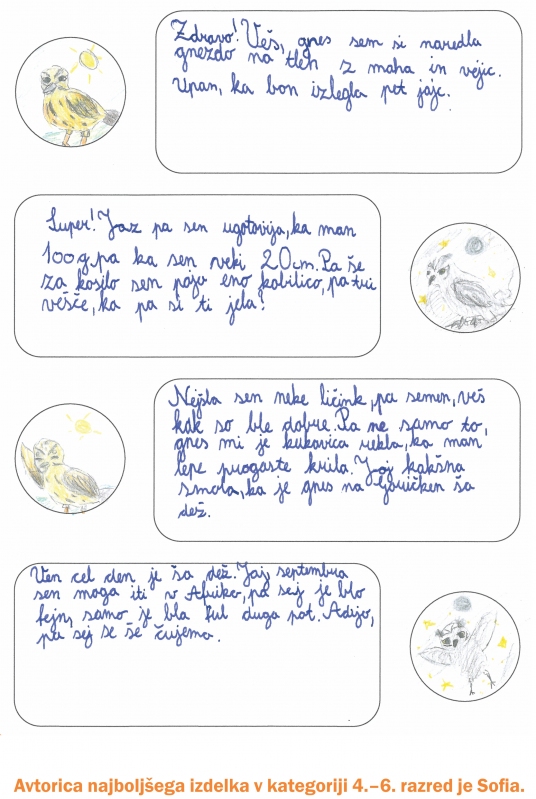 Zdravo! Veš, gnes sem si naredla
gnezdo na tleh z maha in vejic.
Upan, ka bon izlegla pet jajc.
Super! Jaz pa sen ugotovija, ka man
100g, pa ka sen veki 20cm. Pa še
za kosilo sen poja eno kobilico, pa tri
vešče, ka pa si ti jela?
Nejšla sen neke ličink, pa semen, veš
kak so ble dobre. Pa ne samo to,
gnes mi je kukavica rekla, ka man
lepe progaste krila. Joj kakšna
smola, ka je gnes na Goričken ša
dež.
Ven cel den je ša dež. Jaz septembra
sen moga iti v Afriko, pa sej je blo
fejn, samo je bla ful duga pot. Adijo,
pa sej se še čujema.
Avtorica najboljšega izdelka v kategoriji 4.–6. razred je Sofia.